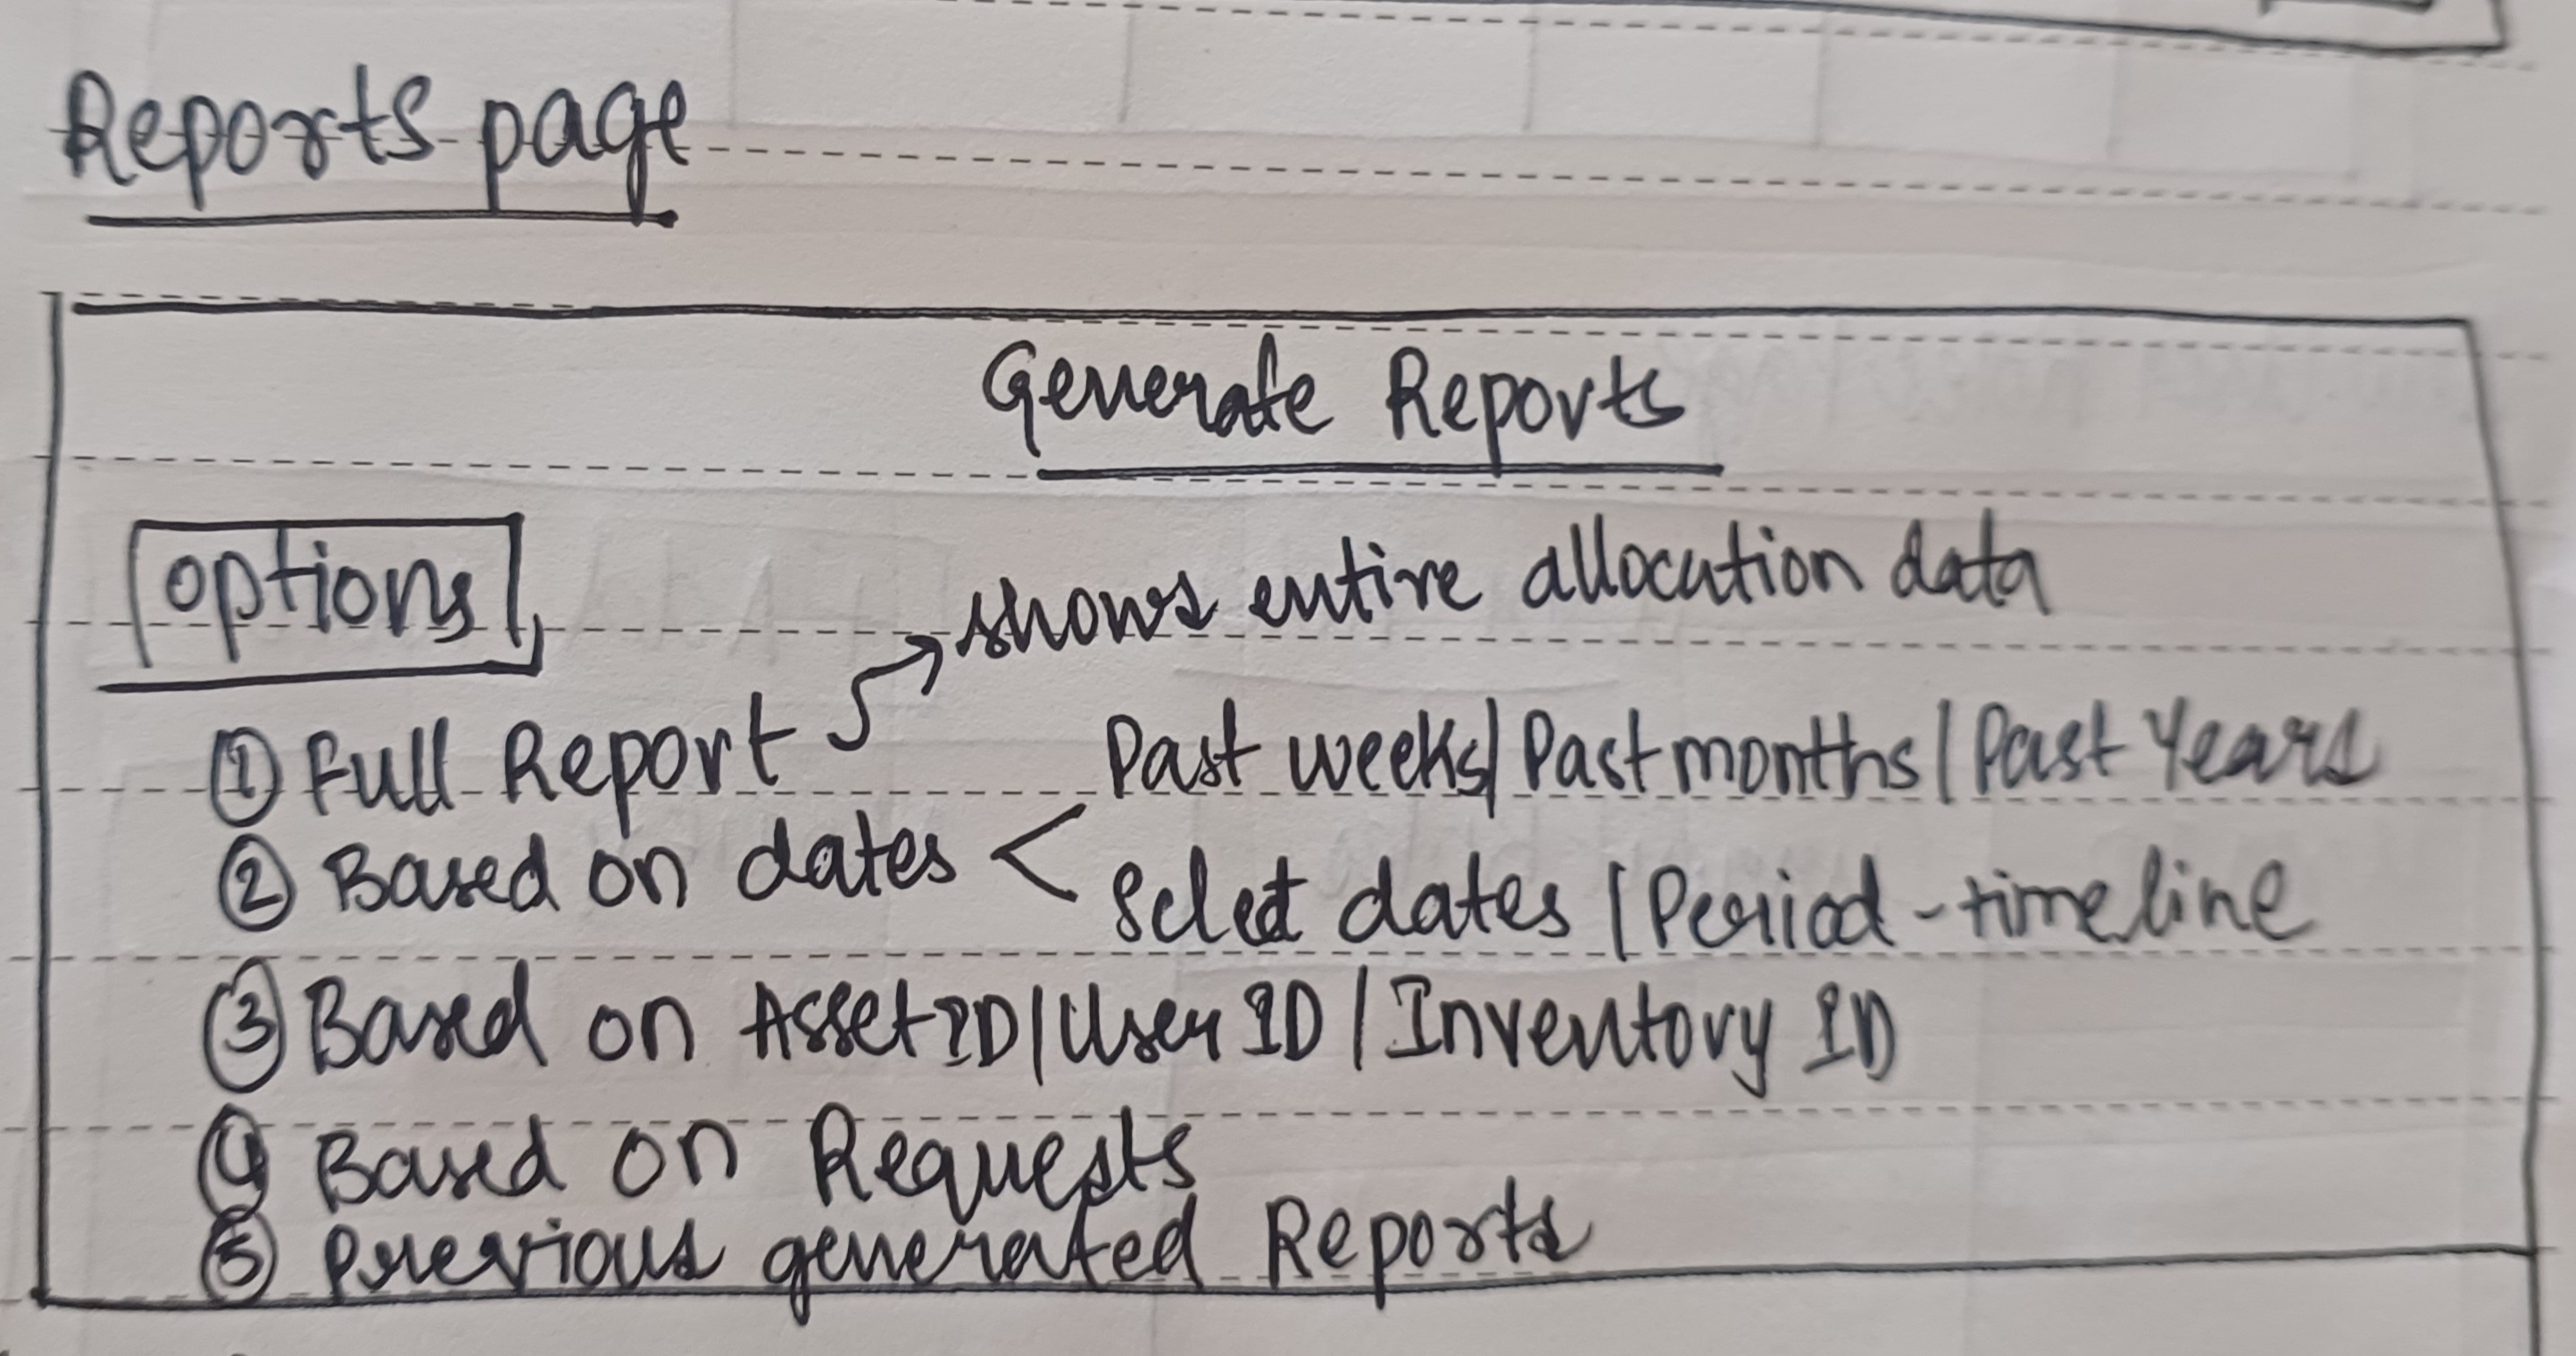 Reports page
Generate Reports
options
shows entire allocation data
① Full Report
Past weeks | Past months | Past Years
② Based on dates <
Select dates | Period - timeline
③ Based on Asset ID | User ID | Inventory ID
④ Based on Requests
⑤ Previous generated Reports